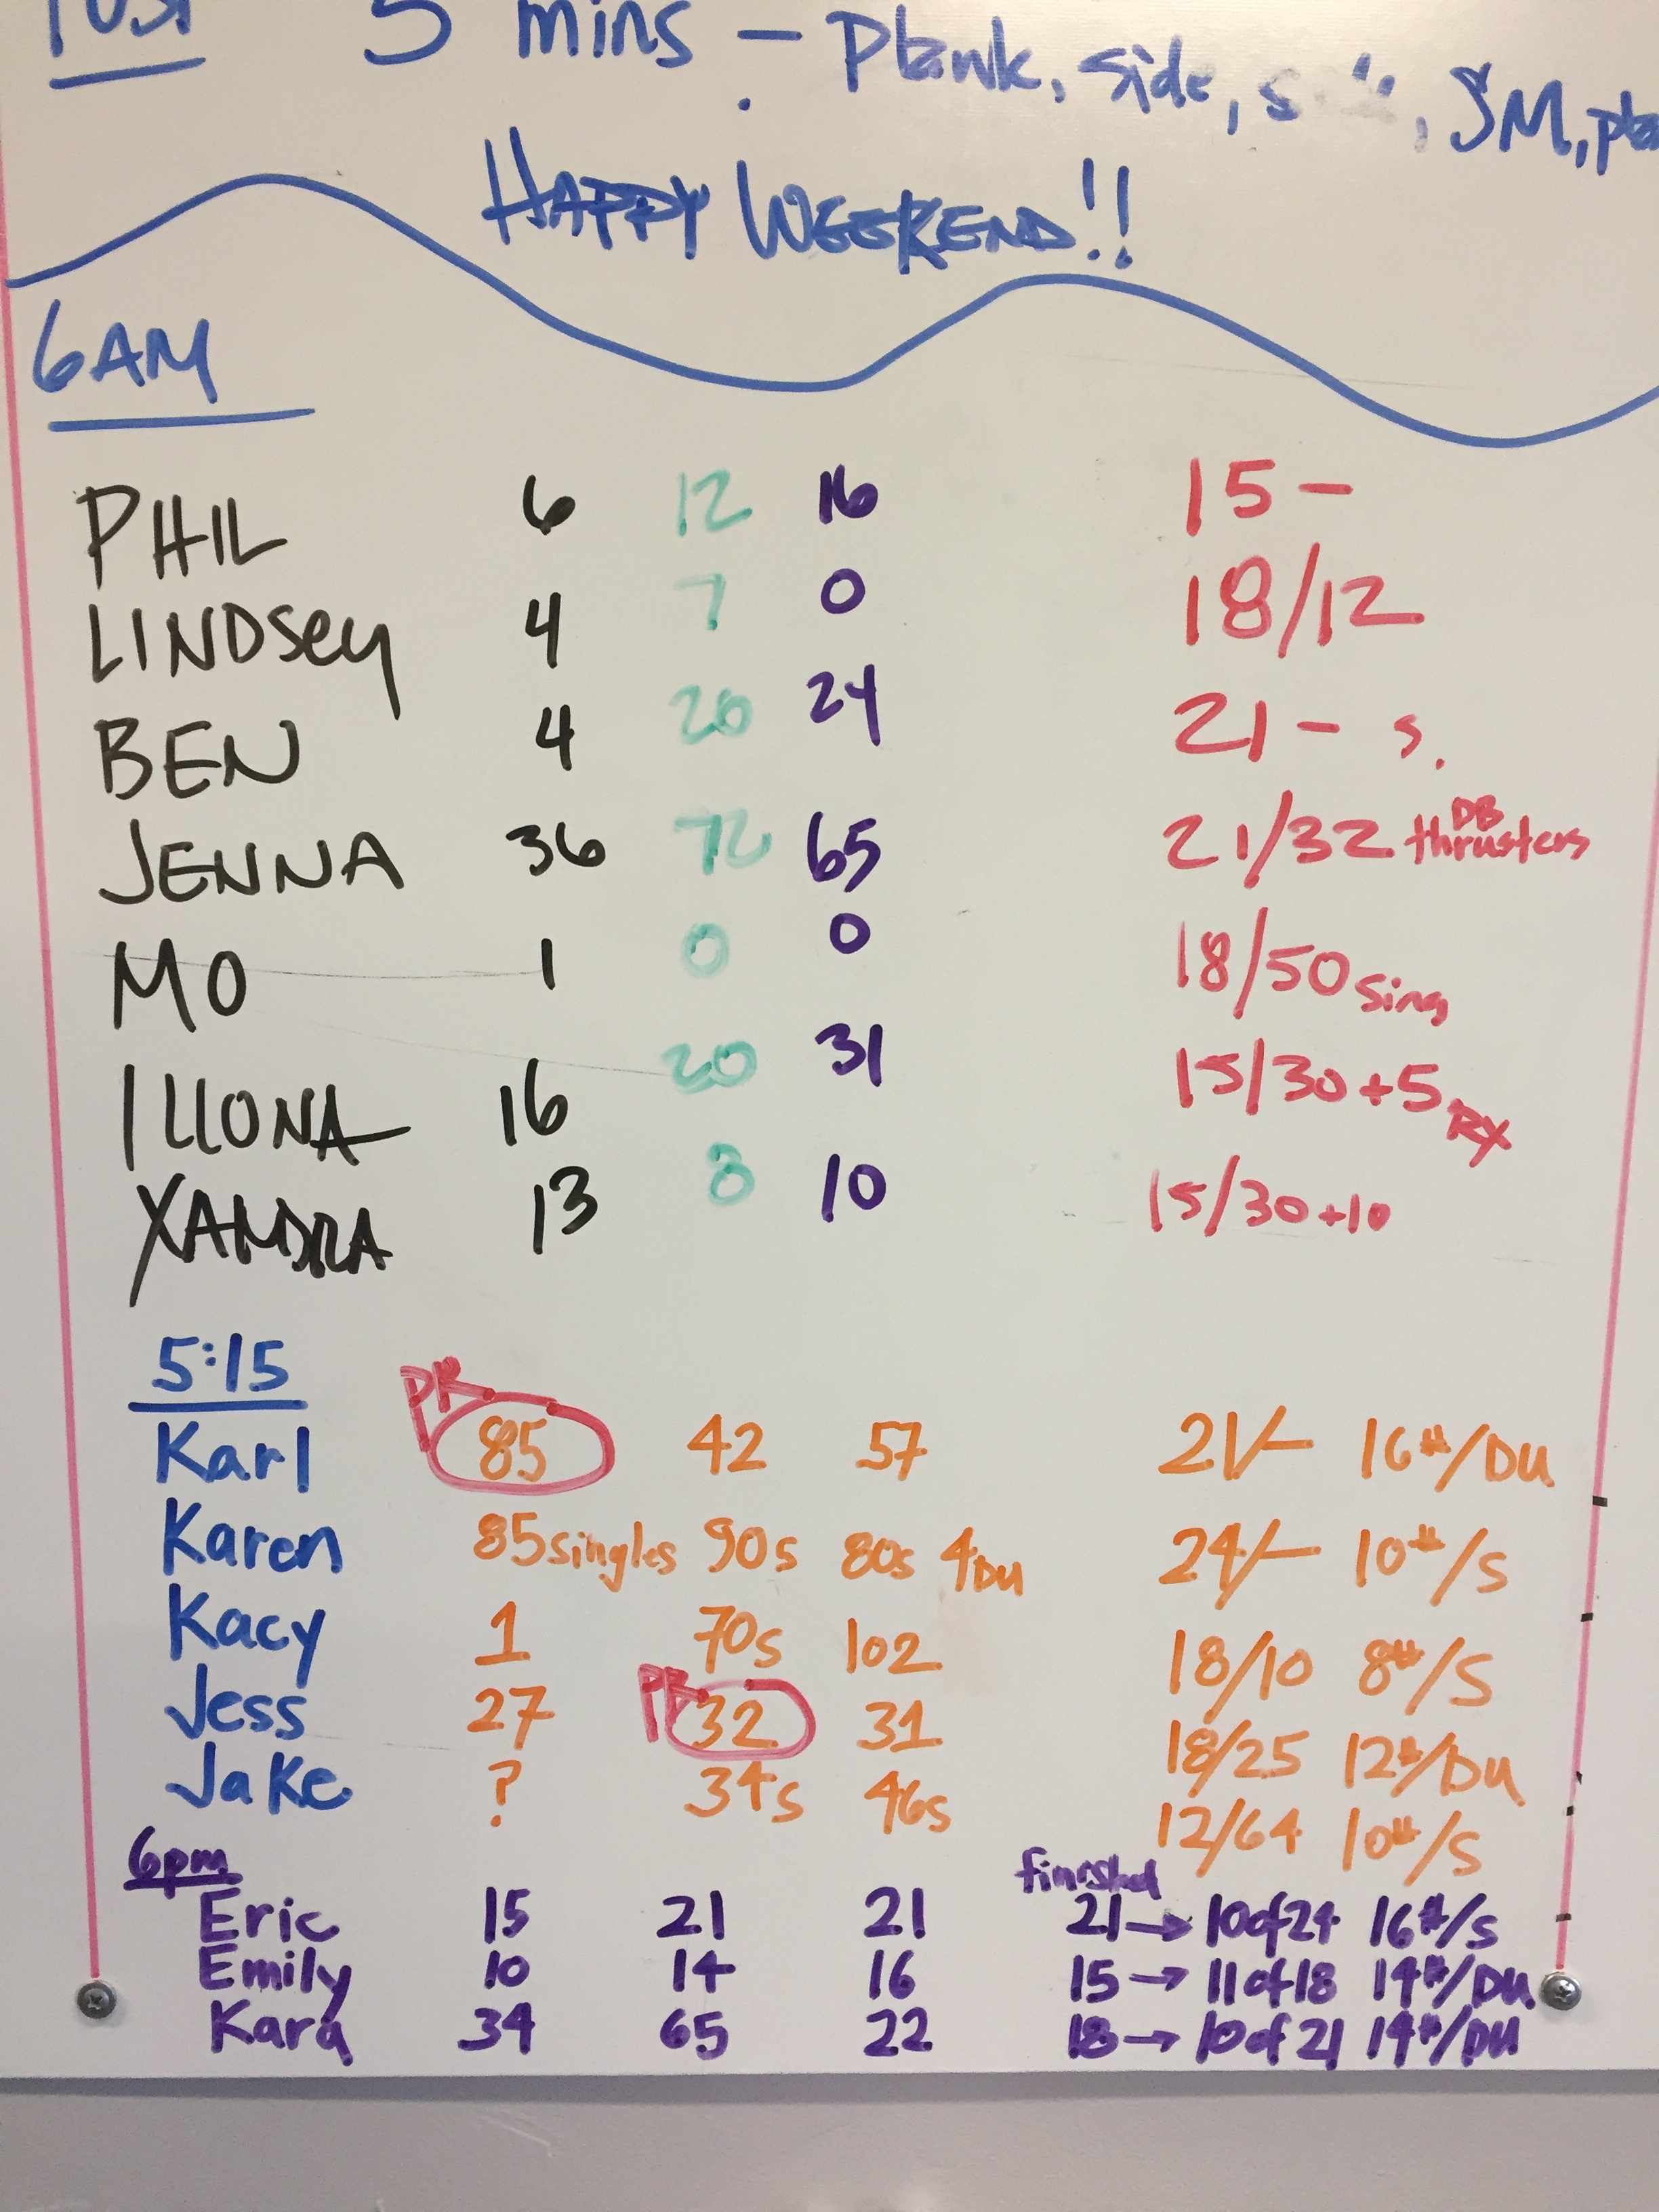 5 mins - Plank, Side, SM,
HAPPY WEEKEND!!
6AM
PHIL 6 12 16 15 -
LINDSey 4 7 0 18/12
BEN 4 20 24 21 - s.
JENNA 36 72 65 21/32 DB thrusters
MO 1 0 0 18/50 Sing
ILLONA 16 20 31 15/30 +5 RX
XANDRA 13 8 10 15/30 +10
5:15
Karl PR 85 42 57 21/- 16#/DU
Karen 85 singles 90s 80s 4DU 24/- 10#/S
Kacy 1 70s 102 18/10 8#/S
Jess 27 PR 32 31 18/25 12#/DU
Jake ? 34s 46s 12/64 10#/S
6pm finished
Eric 15 21 21 21 → 10of24 16#/S
Emily 10 14 16 15 → 11of18 14#/DU
Kara 34 65 22 18 → 10of21 14#/DU